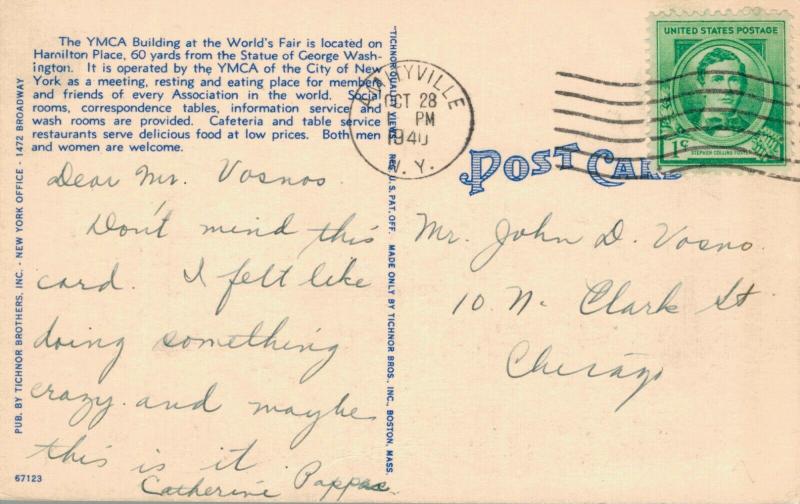 The YMCA Building at the World's Fair is located on
Hamilton Place, 60 yards from the Statue of George Wash-
ington. It is operated by the YMCA of the City of New
York as a meeting, resting and eating place for members
and friends of every Association in the world. Social
rooms, correspondence tables, information service and
wash rooms are provided. Cafeteria and table service
restaurants serve delicious food at low prices. Both men
and women are welcome.
Dear Mr. Vosnos
Don't mind this
card. I felt like
doing something
crazy and maybe
this is it
Catherine Pappas
PUB. BY TICHNOR BROTHERS, INC. - NEW YORK OFFICE - 1472 BROADWAY
67123
"TICHNOR QUALITY VIEWS" REG. U. S. PAT. OFF. MADE ONLY BY TICHNOR BROS., INC., BOSTON, MASS.
OCT 28
PM
1940
N. Y.
UNITED STATES POSTAGE
1¢
STEPHEN COLLINS FOSTER
POST CARD
Mr. John D. Vosno
10 N. Clark St
Chicago